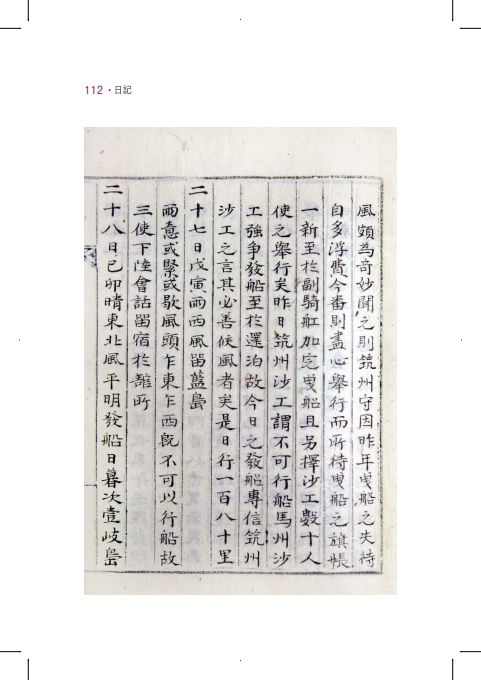 112 · 日記
風頗為奇妙聞之則筑州守因昨年曳船之失待
自多浮費今番則盡心舉行而所待曳船之旗帳
一新至於副騎舡加定曳船且另擇沙工數十人
使之舉行矣昨日筑州沙工謂不可行船馬州沙
工強爭發船至於還泊故今日之發船專信筑州
沙工之言其必善候風者矣是日行一百八十里
二十七日戊寅雨西風留藍島
雨意或緊或歇風頭乍東乍西旣不可以行船故
三使下陸會話留宿於館所
二十八日己卯晴東北風平明發船日暮次壹岐島